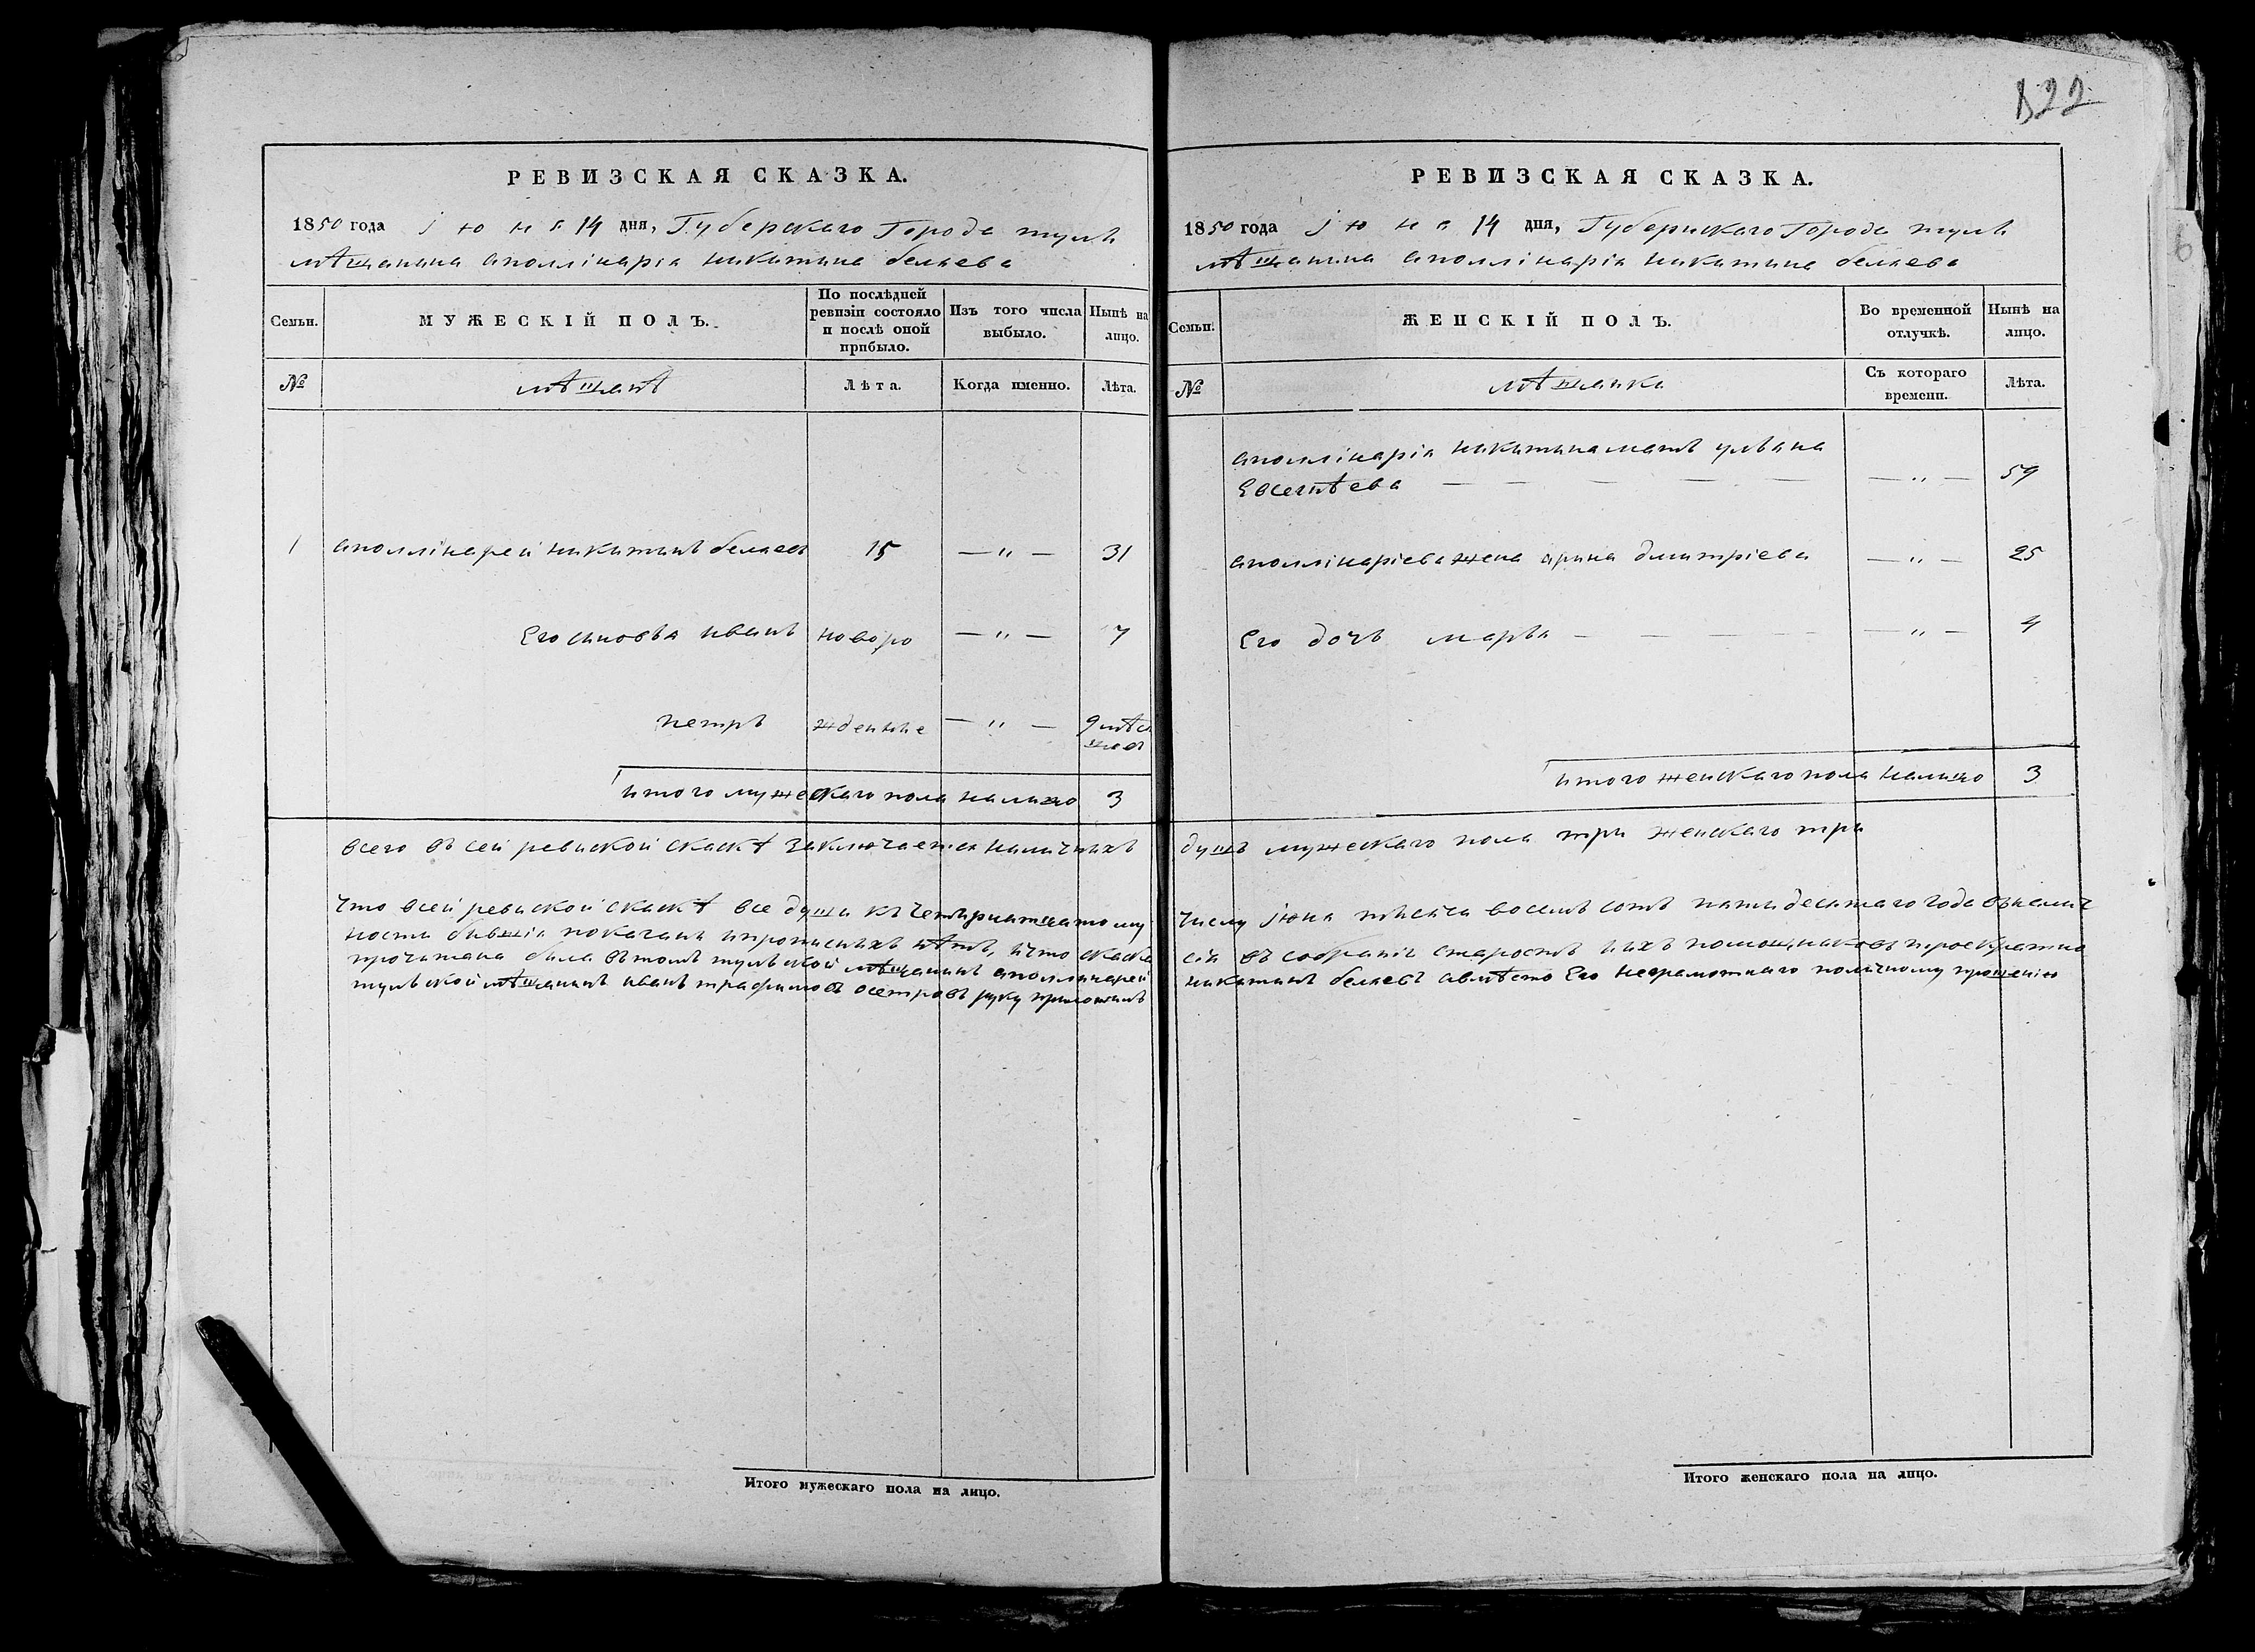 822
РЕВИЗСКАЯ СКАЗКА.
1850 года іюня 14 дня, Губерскаго Города тулы
мѣщанина аполлінарія никитина беляева
Семьи. МУЖЕСКІЙ ПОЛЪ. По послѣдней ревизіи состояло и послѣ оной прибыло. Изъ того числа выбыло. Нынѣ на лицо.
№ мѣщанѣ Лѣта. Когда именно. Лѣта.
1 аполлінарей никитинъ беляевъ 15 — " — 31
Его сыновья иванъ новоро — " — 7
петръ жденные — " — 9 мѣся
цевъ
итого мужескаго пола налицо 3
всего въ сей ревиской скаскѣ заключается наличныхъ
что всей ревиской скаскѣ все души къ четырнатцатому
ности бывшія показаны ипрописныхъ нѣтъ, ичто скаска
прочитана была въ томъ тульской мѣщанинъ аполлинарей
тульской мѣщанинъ иванъ трафимовъ осетровъ руку приложилъ
Итого мужескаго пола на лицо.
РЕВИЗСКАЯ СКАЗКА.
1850 года іюня 14 дня, Губернскаго Города тулы
мѣщанина аполлінарія никитина беляева
Семьи. ЖЕНСКІЙ ПОЛЪ. Во временной отлучкѣ. Нынѣ на лицо.
№ мѣщанки Съ котораго времени. Лѣта.
аполлінарія никитина мать ульяна
Евсегнѣева — — — — — — " — 59
аполлінаріева жена арина дмитріева — " — 25
Его дочь марья — — — — " — 4
итого женскаго пола налицо 3
душъ мужескаго пола три женскаго три
числу іюня мѣсяца восемь сотъ пятидесятаго года внелич
сія въ собраніи старостъ ихъ помощниковъ троекратно
никитинъ беляевъ авмѣсто Его неграмотнаго поличному прошенію
Итого женскаго пола на лицо.